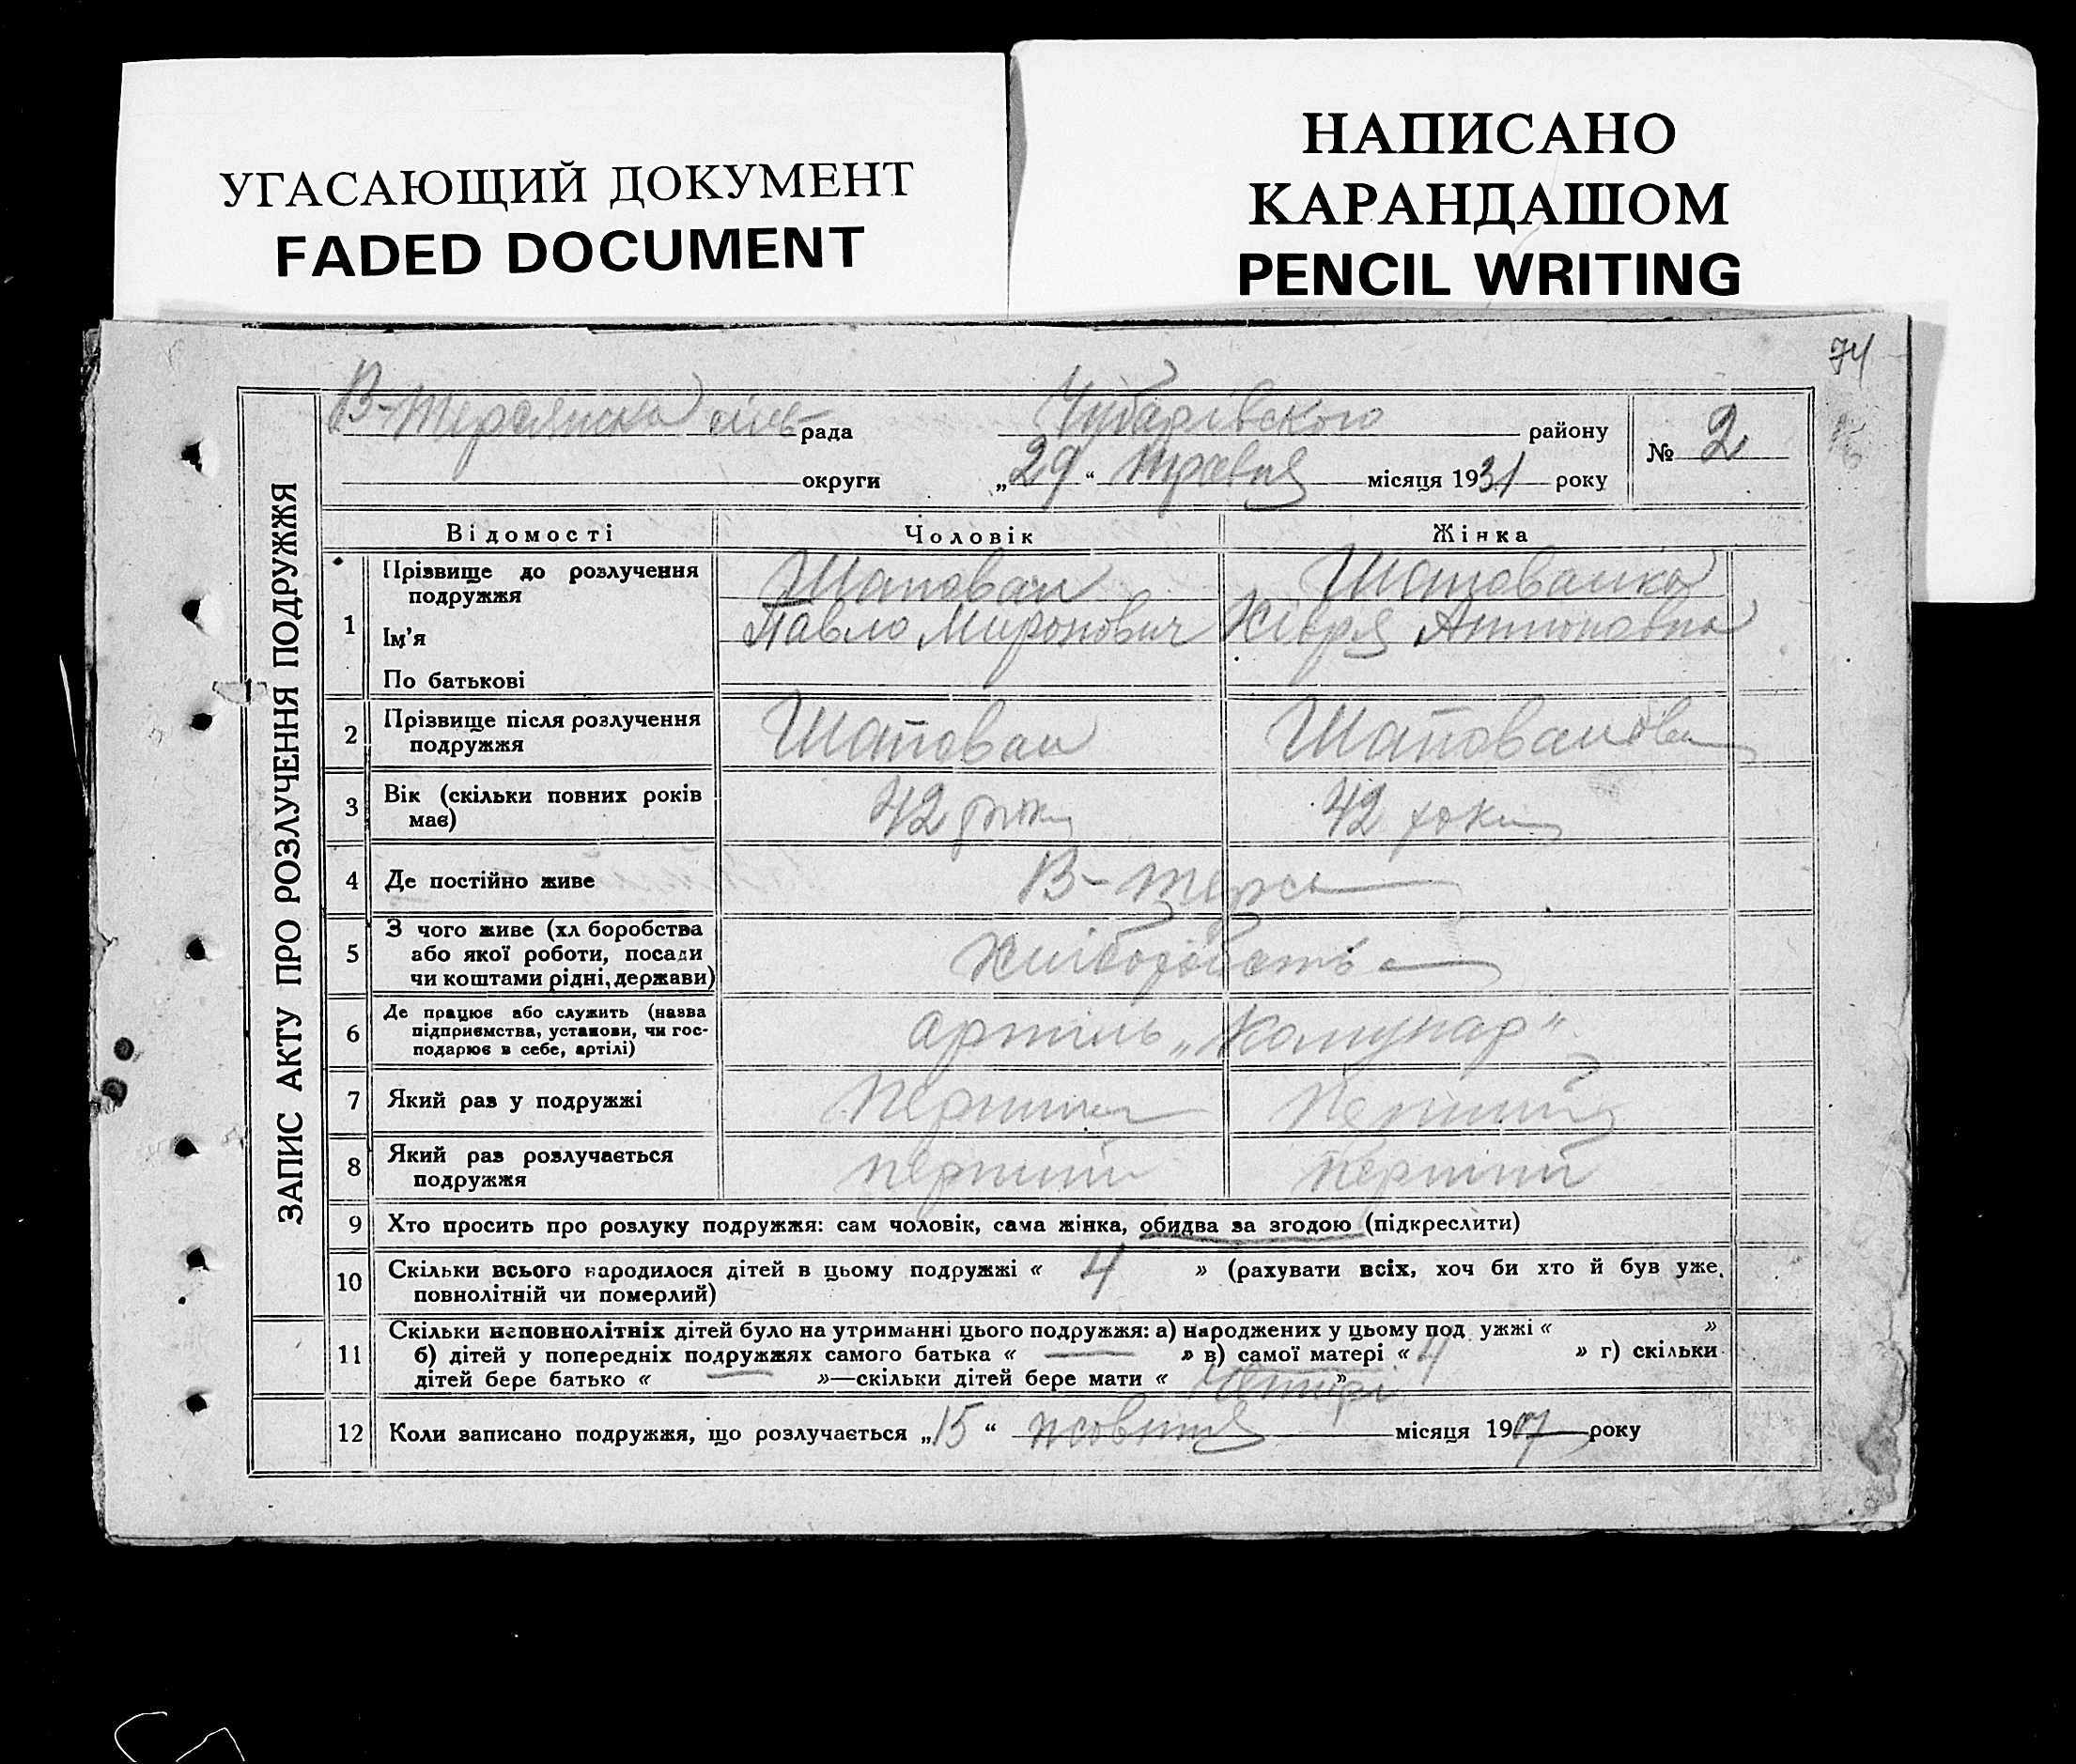 УГАСАЮЩИЙ ДОКУМЕНТ
FADED DOCUMENT
НАПИСАНО
КАРАНДАШОМ
PENCIL WRITING
74
ЗАПИС АКТУ ПРО РОЗЛУЧЕННЯ ПОДРУЖЖЯ
В-Терсянска сіль рада Чубарівського району
№ 2
округи „29“ травня місяця 1931 року
Відомості Чоловік Жінка
1 Прізвище до розлучення подружжя Шаповал Шаповалка
Ім'я Павло Миронович Хівря Антоновна
По батькові
2 Прізвище після розлучення подружжя Шаповал Шаповалова
3 Вік (скільки повних років має) 42 роки 42 роки
4 Де постійно живе В-Терса
5 З чого живе (хл боробства
або якої роботи, посади
чи коштами рідні, держави) Хліборобств
6 Де працює або служить (назва
підприємства, установи, чи гос-
подарює в себе, артілі) артіль „Комунар“
7 Який раз у подружжі перший перший
8 Який раз розлучається
подружжя перший перший
9 Хто просить про розлуку подружжя: сам чоловік, сама жінка, обидва за згодою (підкреслити)
10 Скільки всього народилося дітей в цьому подружжі « 4 » (рахувати всіх, хоч би хто й був уже
повнолітній чи померлий)
11 Скільки неповнолітніх дітей було на утриманні цього подружжя: а) народжених у цьому под ужжі « »
б) дітей у попередніх подружжях самого батька « — » в) самої матері « 4 » г) скільки
дітей бере батько « — »—скільки дітей бере мати « Чотирі »
12 Коли записано подружжя, що розлучається „15“ жовтня місяця 1907 року